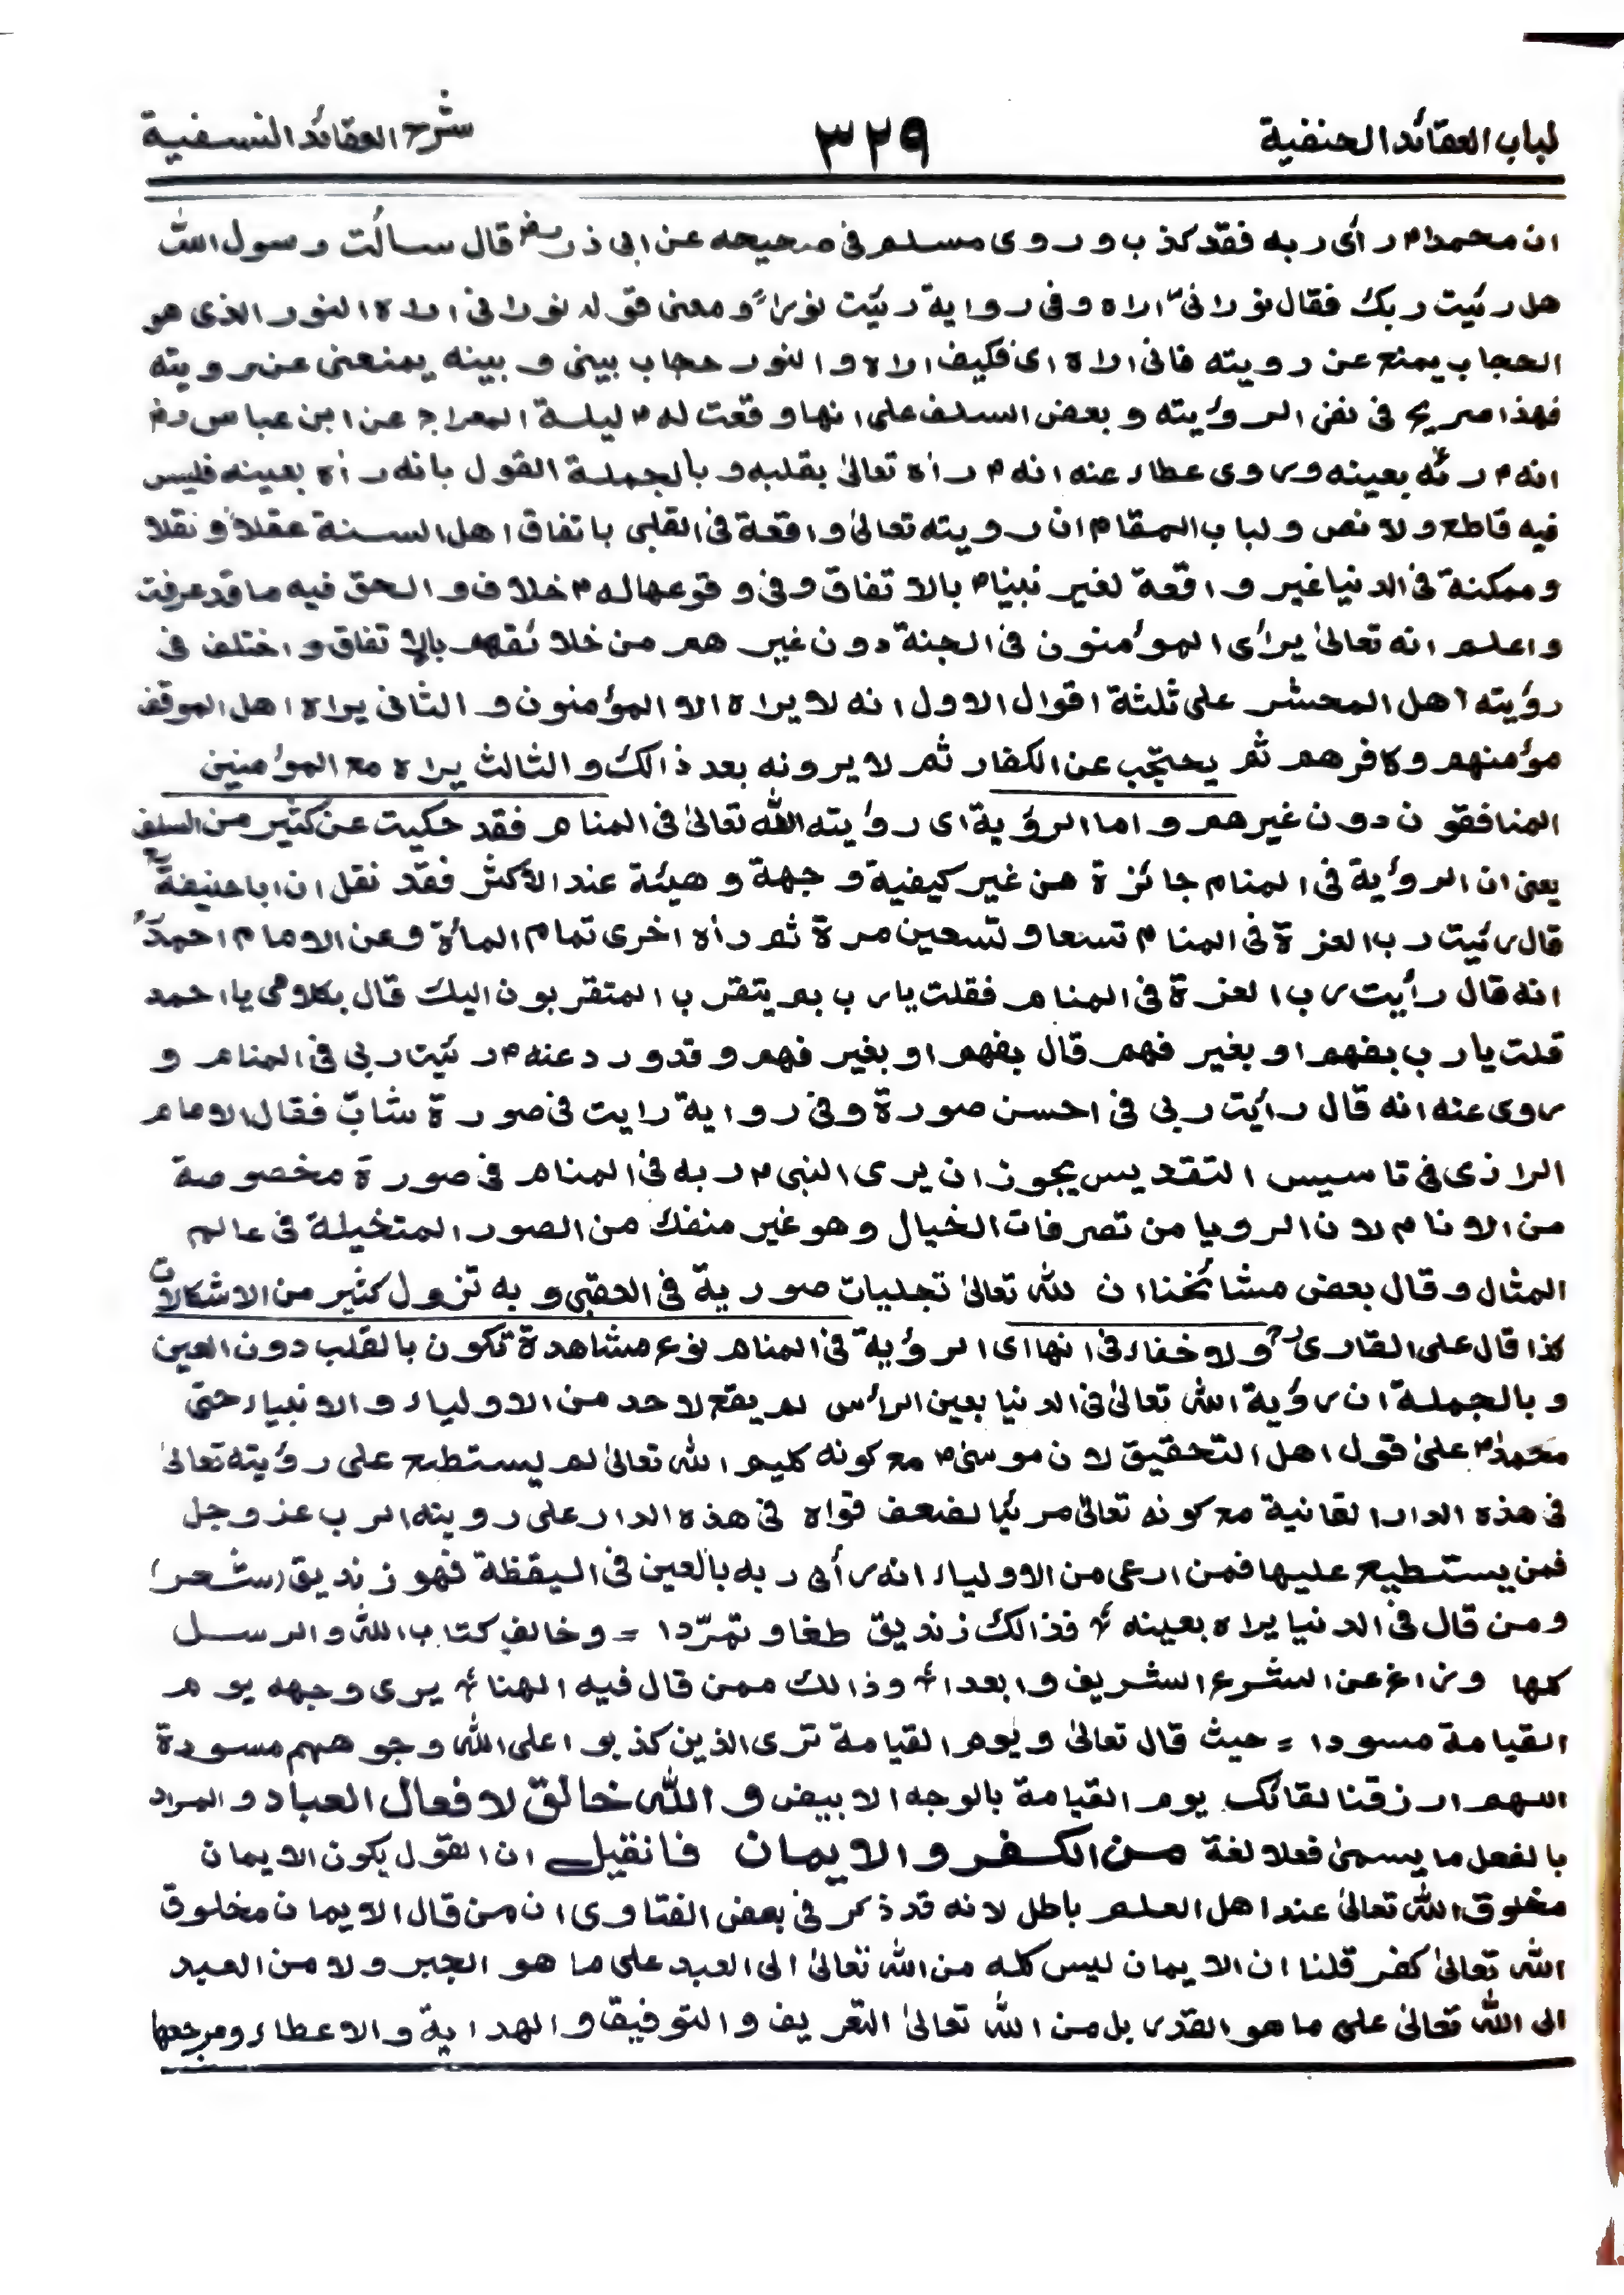 لباب العقائد الحنفية ٣٢٩ شرح العقائد النسفية
ان محمدا م رأى ربه فقد كذب وروى مسلم فى صحيحه عن ابى ذر رض قال سألت رسول الله
هل رئيت ربك فقال نورا نى اراه وفى رواية رئيت نورا ومعنى قوله نورا نى اراه النور الذى هو
الحجاب يمنع عن رويته فانى اراه اى فكيف اراه والنور حجاب بينى وبينه يمنعنى عن رويته
فهذا صريح فى نفى الرؤيته وبعض السلف على انها وقعت له م ليلة المعراج عن ابن عباس رض
انه م رئه بعينه وروى عطاء عنه انه م رأه تعالىٰ بقلبه وبالجملة القول بانه رأه بعينه فليس
فيه قاطع ولا نص ولباب المقام ان رويته تعالىٰ واقعة فى القلبى باتفاق اهل السنة عقلا و نقلا
وممكنة فى الدنيا غير واقعة لغير نبينا م بالاتفاق وفى وقوعها له م خلاف والحق فيه ما قد عرفت
واعلم انه تعالىٰ يرأى المؤمنون فى الجنة دون غيرهم من خلائقهم بالاتفاق واختلف فى
رؤيته اهل المحشر على ثلثة اقوال الاول انه لا يراه الا المؤمنون والثانى يراه اهل الموقف
مؤمنهم وكافرهم ثم يحتجّب عن الكفار ثم لا يرونه بعد ذالك والثالث يراه مع المؤمنين
المنافقون دون غيرهم واما الرؤية اى رؤيته الله تعالىٰ فى المنام فقد حكيت عن كثير من السلف
يعنى ان الرؤية فى المنام جائزة من غير كيفية وجهة وهيئة عند الاكثر فقد نقل ان ابا حنيفة
قال رئيت رب العزة فى المنام تسعا وتسعين مرة ثم رأه اخرى تمام المأة وعن الامام احمد
انه قال رأيت رب العزة فى المنام فقلت يا رب بم يتقرب المتقربون اليك قال بكلامى يا احمد
قلت يا رب بفهم او بغير فهم قال بفهم او بغير فهم وقد ورد عنه م رئيت ربى فى المنام و
روى عنه انه قال رأيت ربى فى احسن صورة وفى رواية رايت فى صورة شابّ فقال الامام
الرازى فى تاسيس التقديس يجوز ان يرى النبى م ربه فى المنام فى صورة مخصوصة
من الانام لان الرويا من تصرفات الخيال وهو غير منفك من الصور المتخيلة فى عالم
المثال وقال بعض مشائخنا ان لله تعالىٰ تجليات صورية فى العقبى وبه تزول كثير من الاشكالات
كذا قال على القارى ولا خفاء فى انها اى الرؤية فى المنام نوع مشاهدة تكون بالقلب دون العين
وبالجملة ان رؤية الله تعالىٰ فى الدنيا بعين الرأس لم يقع لاحد من الاولياء والانبياء حتى
محمدا م علىٰ قول اهل التحقيق لان موسىٰ م مع كونه كليم الله تعالىٰ لم يستطيع على رؤيته تعالىٰ
فى هذه الدار القانية مع كونه تعالىٰ مرئيا لضعف قواه فى هذه الدار على رويته الرب عز وجل
فمن يستطيع عليها فمن ادعى من الاولياء انه رأى ربه بالعين فى اليقظة فهو زنديق (شعر)
ومن قال فى الدنيا يراه بعينه فذالك زنديق طغا وتمرّدا = وخالف كتاب الله والرسل
كلها وزاغ عن الشرع الشريف وابعدا وذالك ممن قال فيه الهنا يرى وجهه يوم
القيامة مسودا = حيث قال تعالىٰ ويوم القيامة ترى الذين كذبوا على الله وجوههم مسودة
اللهم ارزقنا لقائك يوم القيامة بالوجه الابيض و الله خالق لافعال العباد والمراد
بالفعل ما يسمىٰ فعلا لغة من الكفر والايمان فانقيل ان القول بكون الايمان
مخلوق الله تعالىٰ عند اهل العلم باطل لانه قد ذكر فى بعض الفتاوى ان من قال الايمان مخلوق
الله تعالىٰ كفر قلنا ان الايمان ليس كله من الله تعالىٰ الى العبد على ما هو الجبر ولا من العبد
الى الله تعالىٰ على ما هو القدر بل من الله تعالىٰ التعريف والتوفيق والهداية والاعطاء ومرجعها